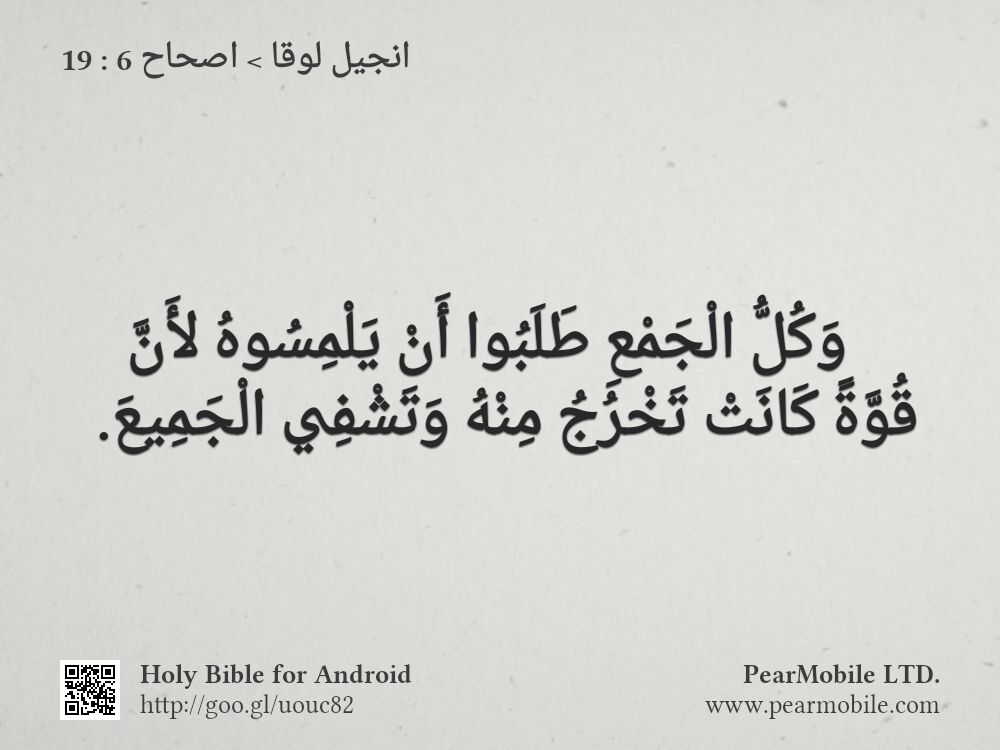 انجيل لوقا > اصحاح 6 : 19
وَكُلُّ الْجَمْعِ طَلَبُوا أَنْ يَلْمِسُوهُ لأَنَّ
قُوَّةً كَانَتْ تَخْرُجُ مِنْهُ وَتَشْفِي الْجَمِيعَ.
Holy Bible for Android
http://goo.gl/uouc82
PearMobile LTD.
www.pearmobile.com